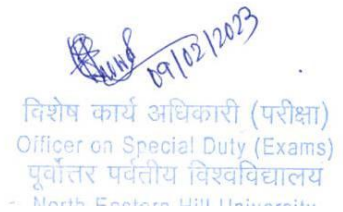 09/02/2023
विशेष कार्य अधिकारी (परीक्षा)
Officer on Special Duty (Exams)
पूर्वोत्तर पर्वतीय विश्वविद्यालय
North Eastern Hill University